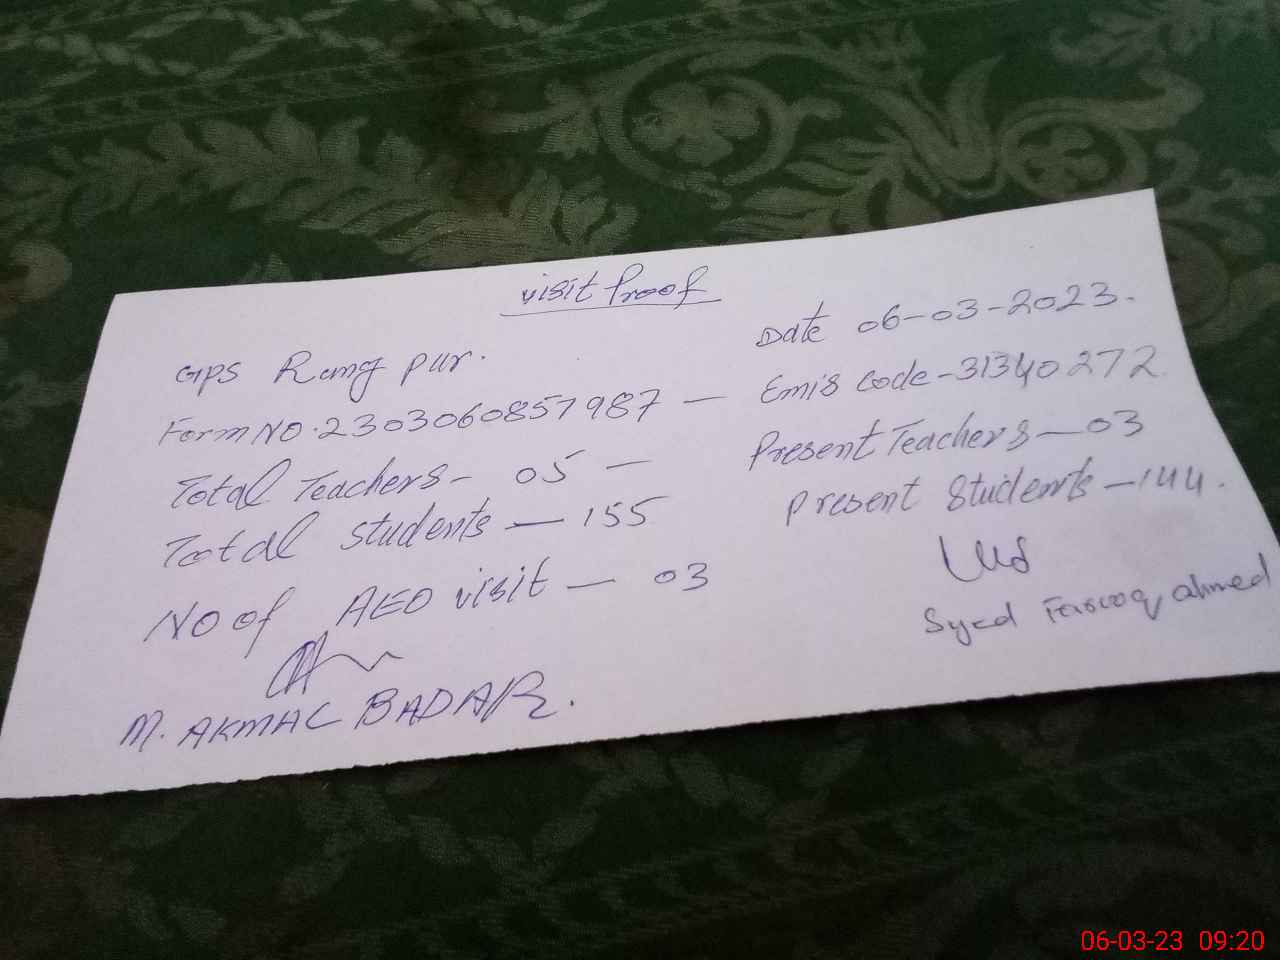 visit Proof
Date 06-03-2023.
GPS Rang pur.
Form NO. 2303060857987 — Emis code - 31340272
Total Teachers - 05 — Present Teachers — 03
Total students — 155 Present Students — 144.
NO of AEO visit — 03
Syed Farooq ahmed
M. AKMAL BADAR.
06-03-23 09:20